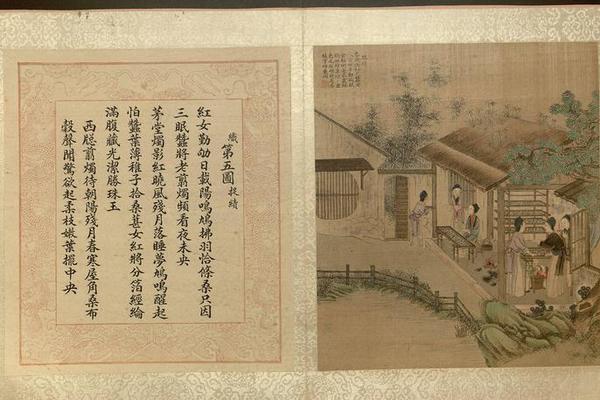 織第五圖捉績
紅女勤劬日載陽鳴鳩拂羽恰條桑只因
三眠蠶將老翦燭頻看夜未央
茅堂燭影紅曉風殘月落睡夢鳩鳴醒起
怕蠶葉薄稚子拾桑葚女紅將分箔經綸
滿腹藏光潔勝珠玉
西牕翦燭待朝陽殘月春寒屋角桑布
穀聲聞鶯欲起柔枝嫩葉擺中央